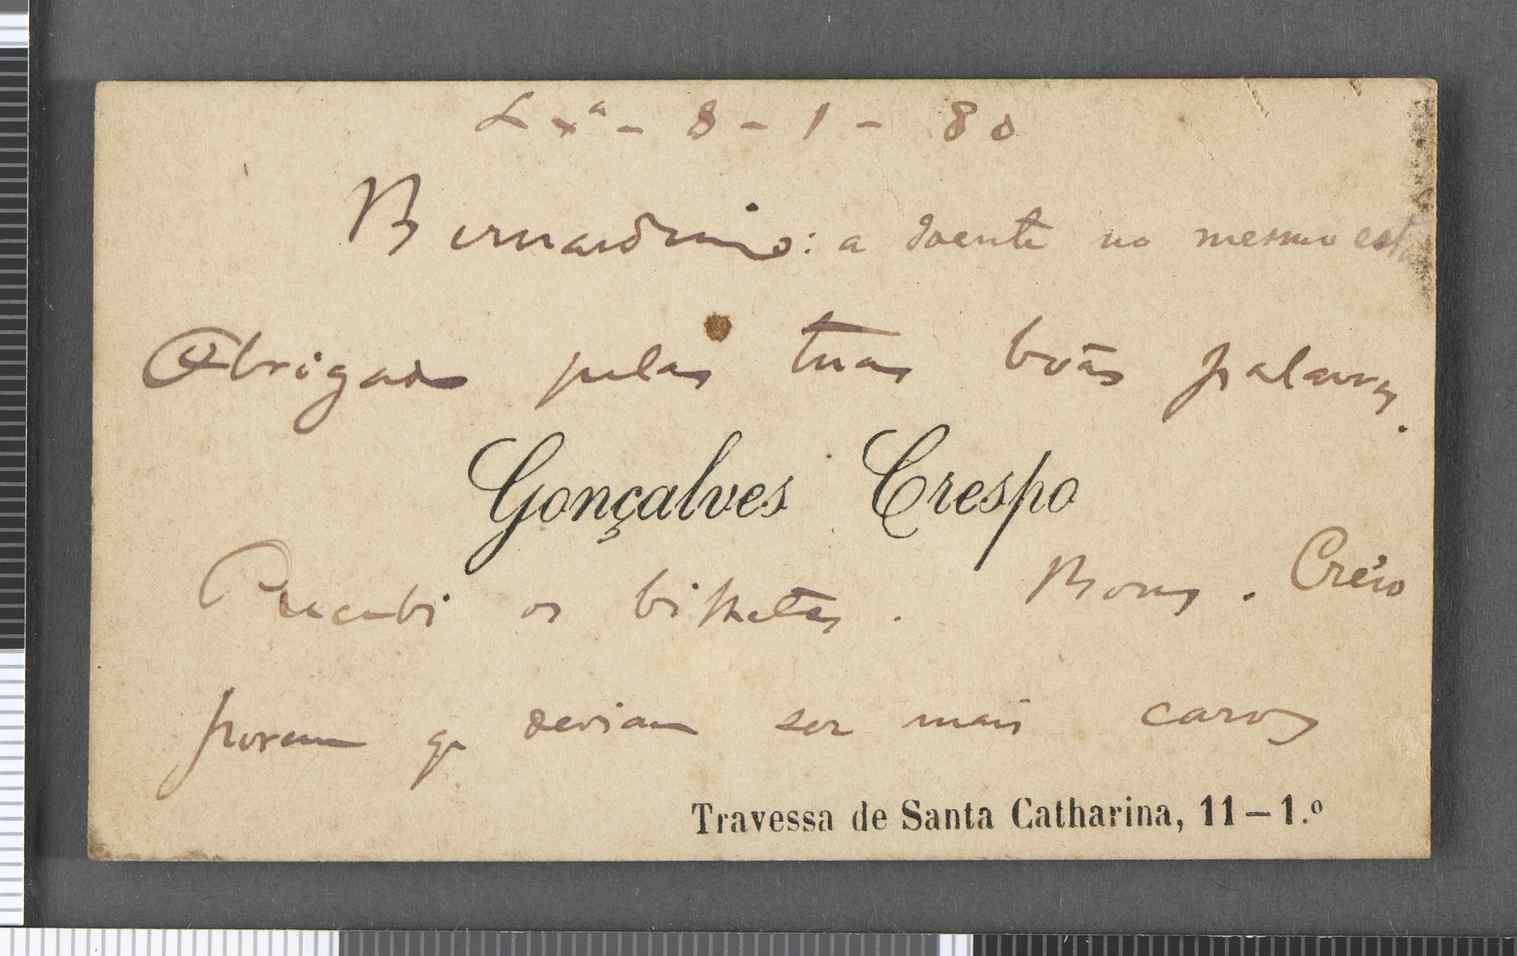 Lxª - 8 - 1 - 80
Bernardino: a doente no mesmo est
Obrigado pelas tuas boas palavras.
Gonçalves Crespo
Recebi os bilhetes. Bons. Creio
porem q deviam ser mais caros
Travessa de Santa Catharina, 11 – 1.º